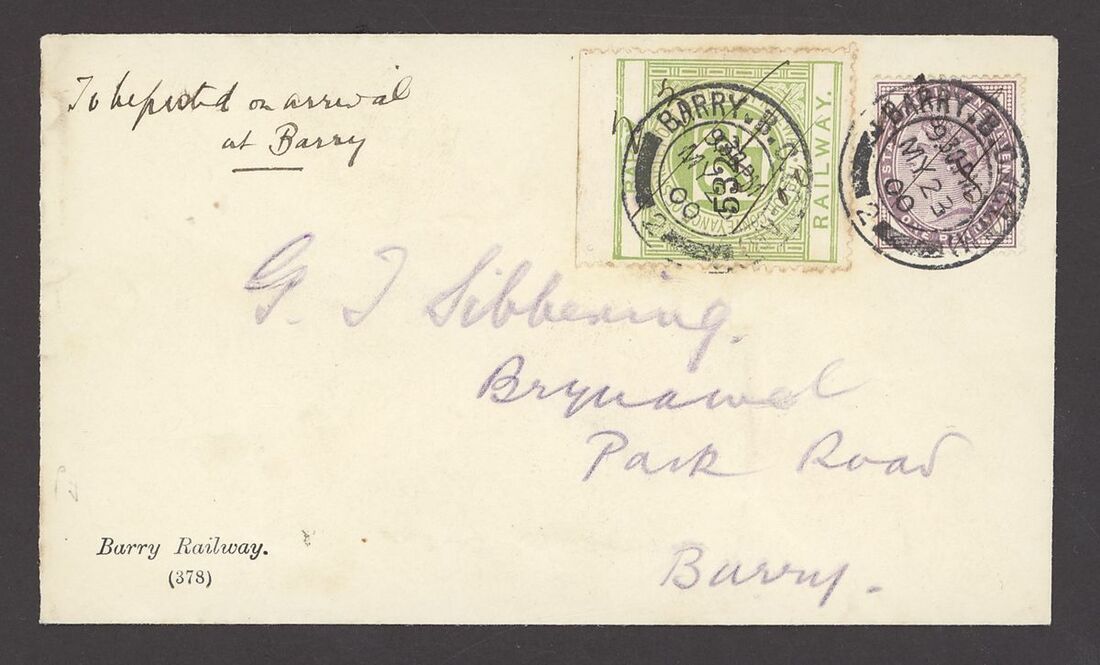 To be posted on arrival
at Barry
RAILWAY.
532
BARRY.
MY 23
00
2
BARRY.
MY 23
00
2
G. T Sibbering.
Brynawel
Park Road
Barry.
Barry Railway.
(378)